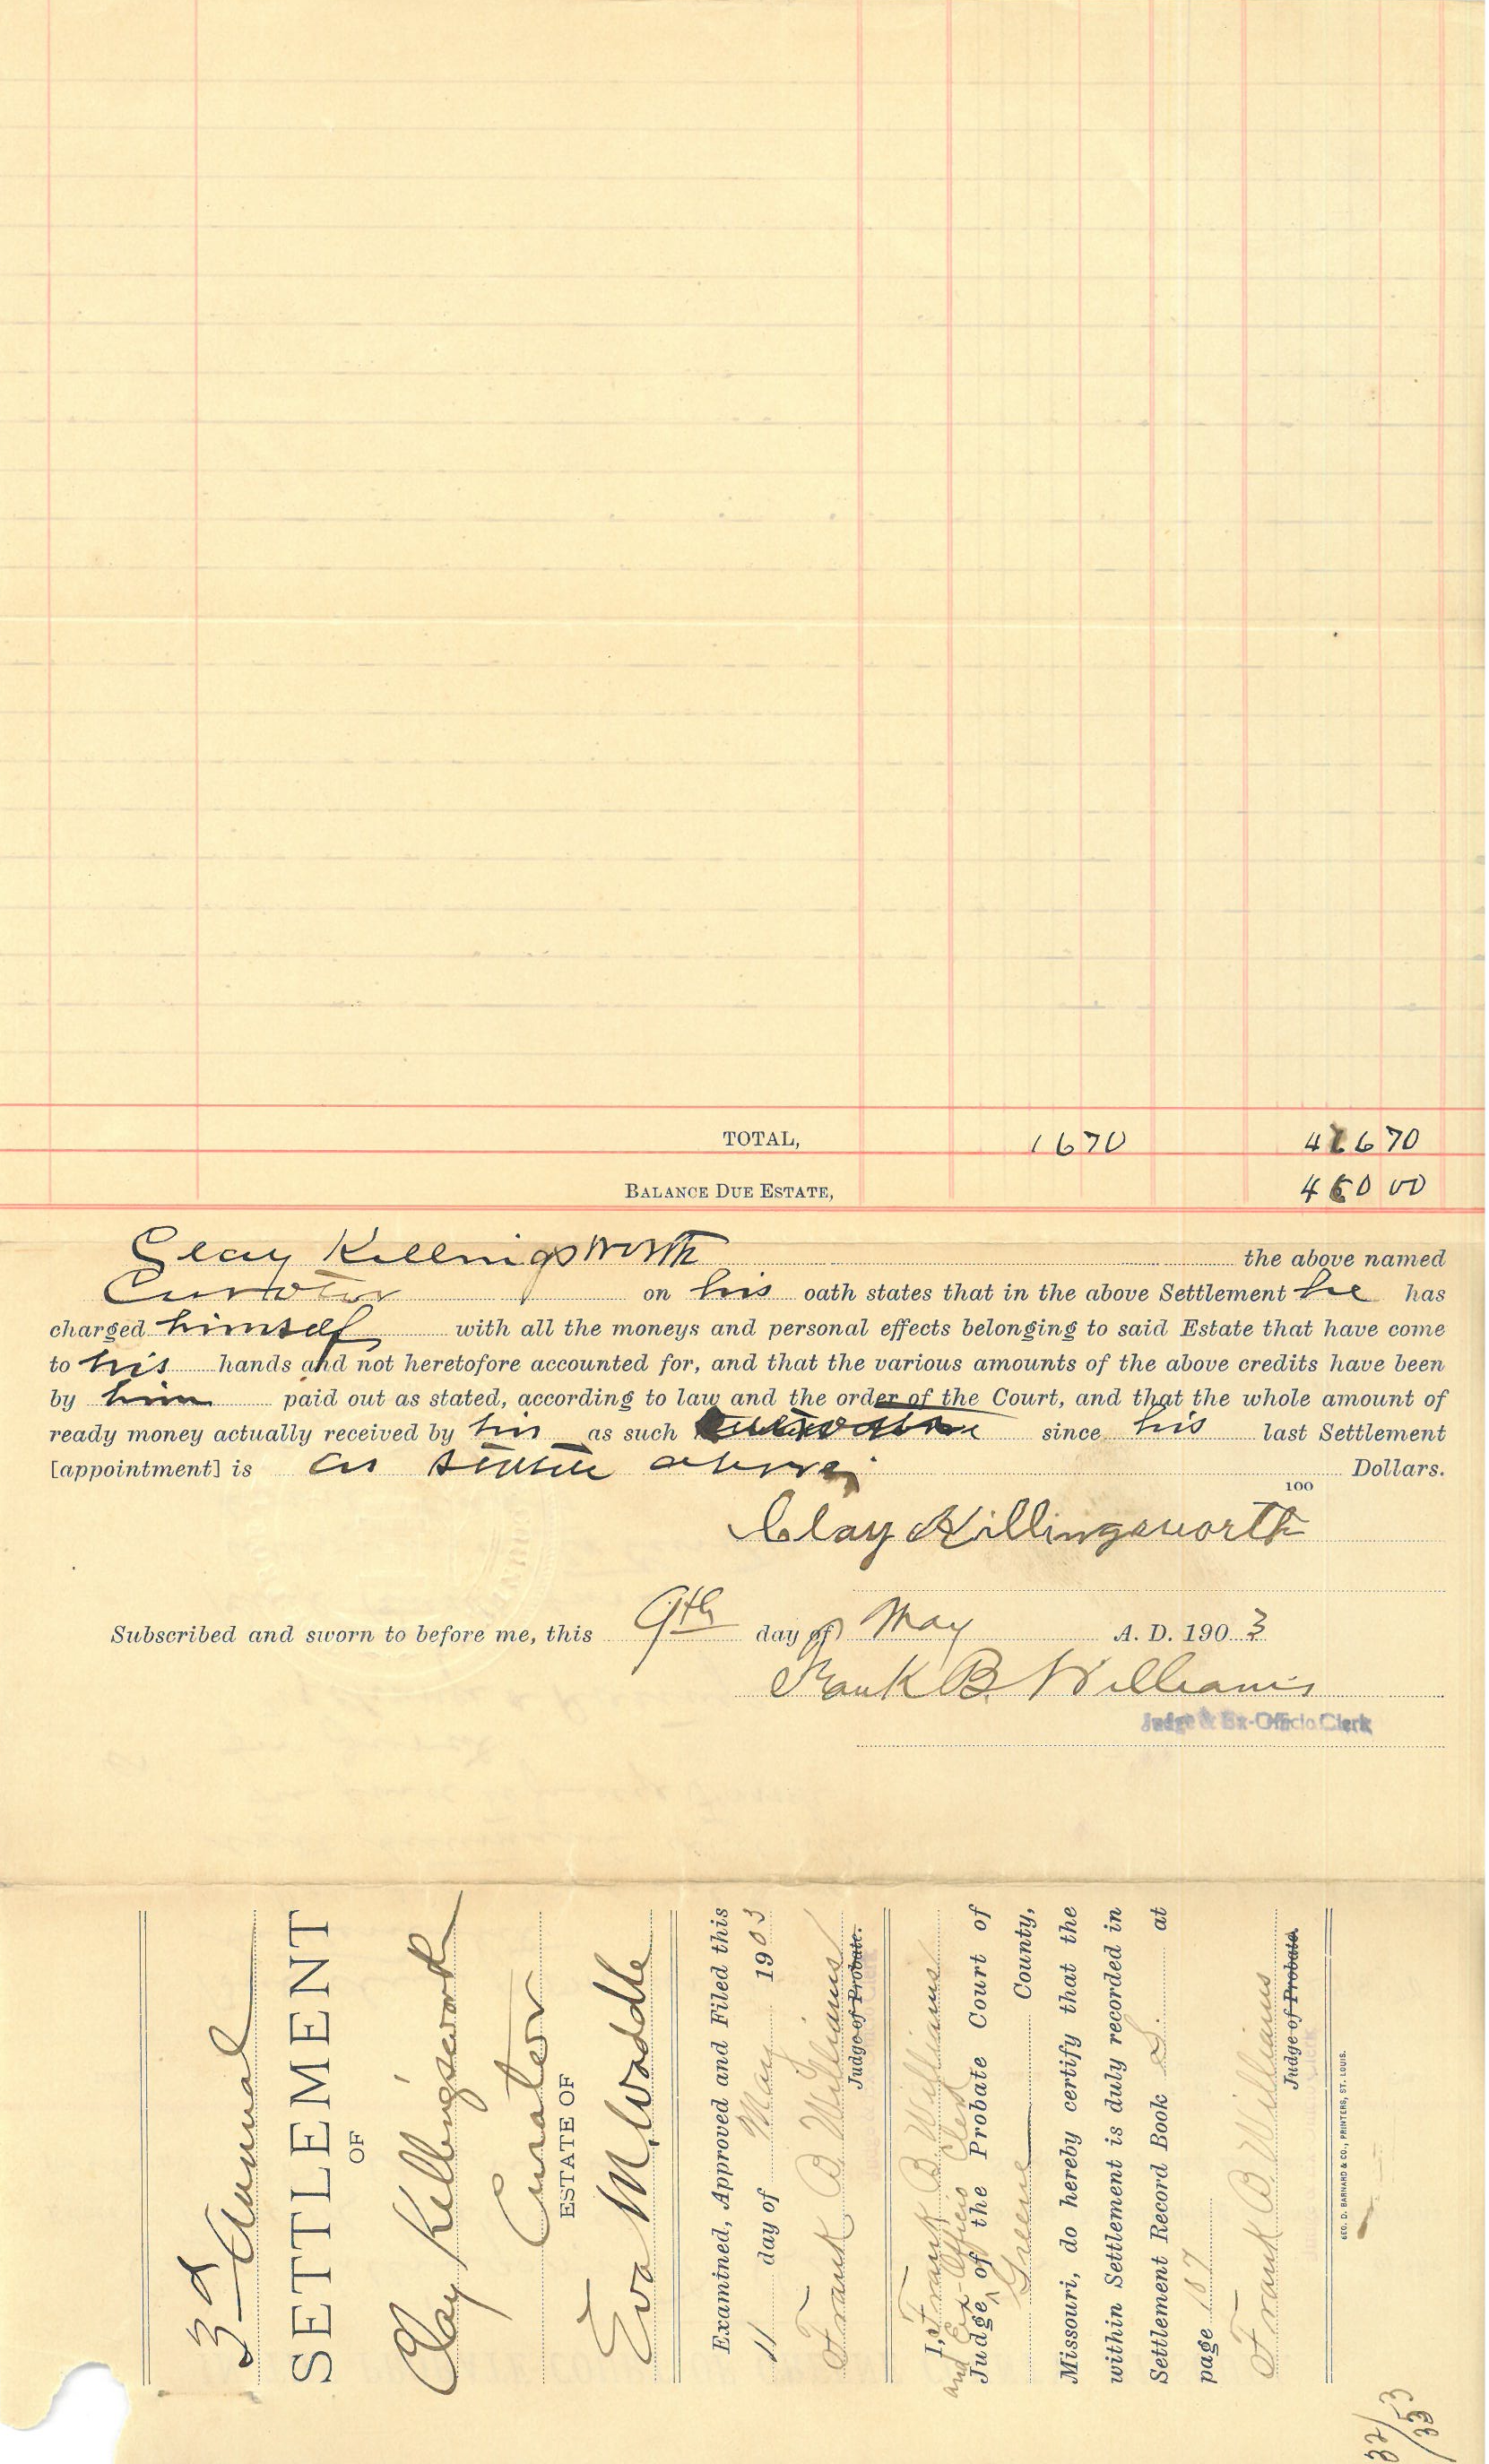 TOTAL, 1670 416 70
BALANCE DUE ESTATE, 400 00
Clay Killingsworth the above named
Curator on his oath states that in the above Settlement he has
charged himself with all the moneys and personal effects belonging to said Estate that have come
to his hands and not heretofore accounted for, and that the various amounts of the above credits have been
by him paid out as stated, according to law and the order of the Court, and that the whole amount of
ready money actually received by him as such since his last Settlement
[appointment] is as above Dollars.
100
Clay Killingsworth
Subscribed and sworn to before me, this 9th day of May A. D. 1903
Frank B. Williams
Judge & Ex-Officio Clerk
3d Annual
SETTLEMENT
OF
Clay Killingsworth
Curator
ESTATE OF
Eva M. Waddle
Examined, Approved and Filed this
11 day of May 1903
Frank B Williams
Judge of Probate.
I, Frank B Williams
and Ex-Officio Clerk
Judge of the Probate Court of
Greene County,
Missouri, do hereby certify that the
within Settlement is duly recorded in
Settlement Record Book S. at
page 187
Frank B Williams
Judge of Probate.
GEO. D. BARNARD & CO., PRINTERS, ST. LOUIS.
32/
353